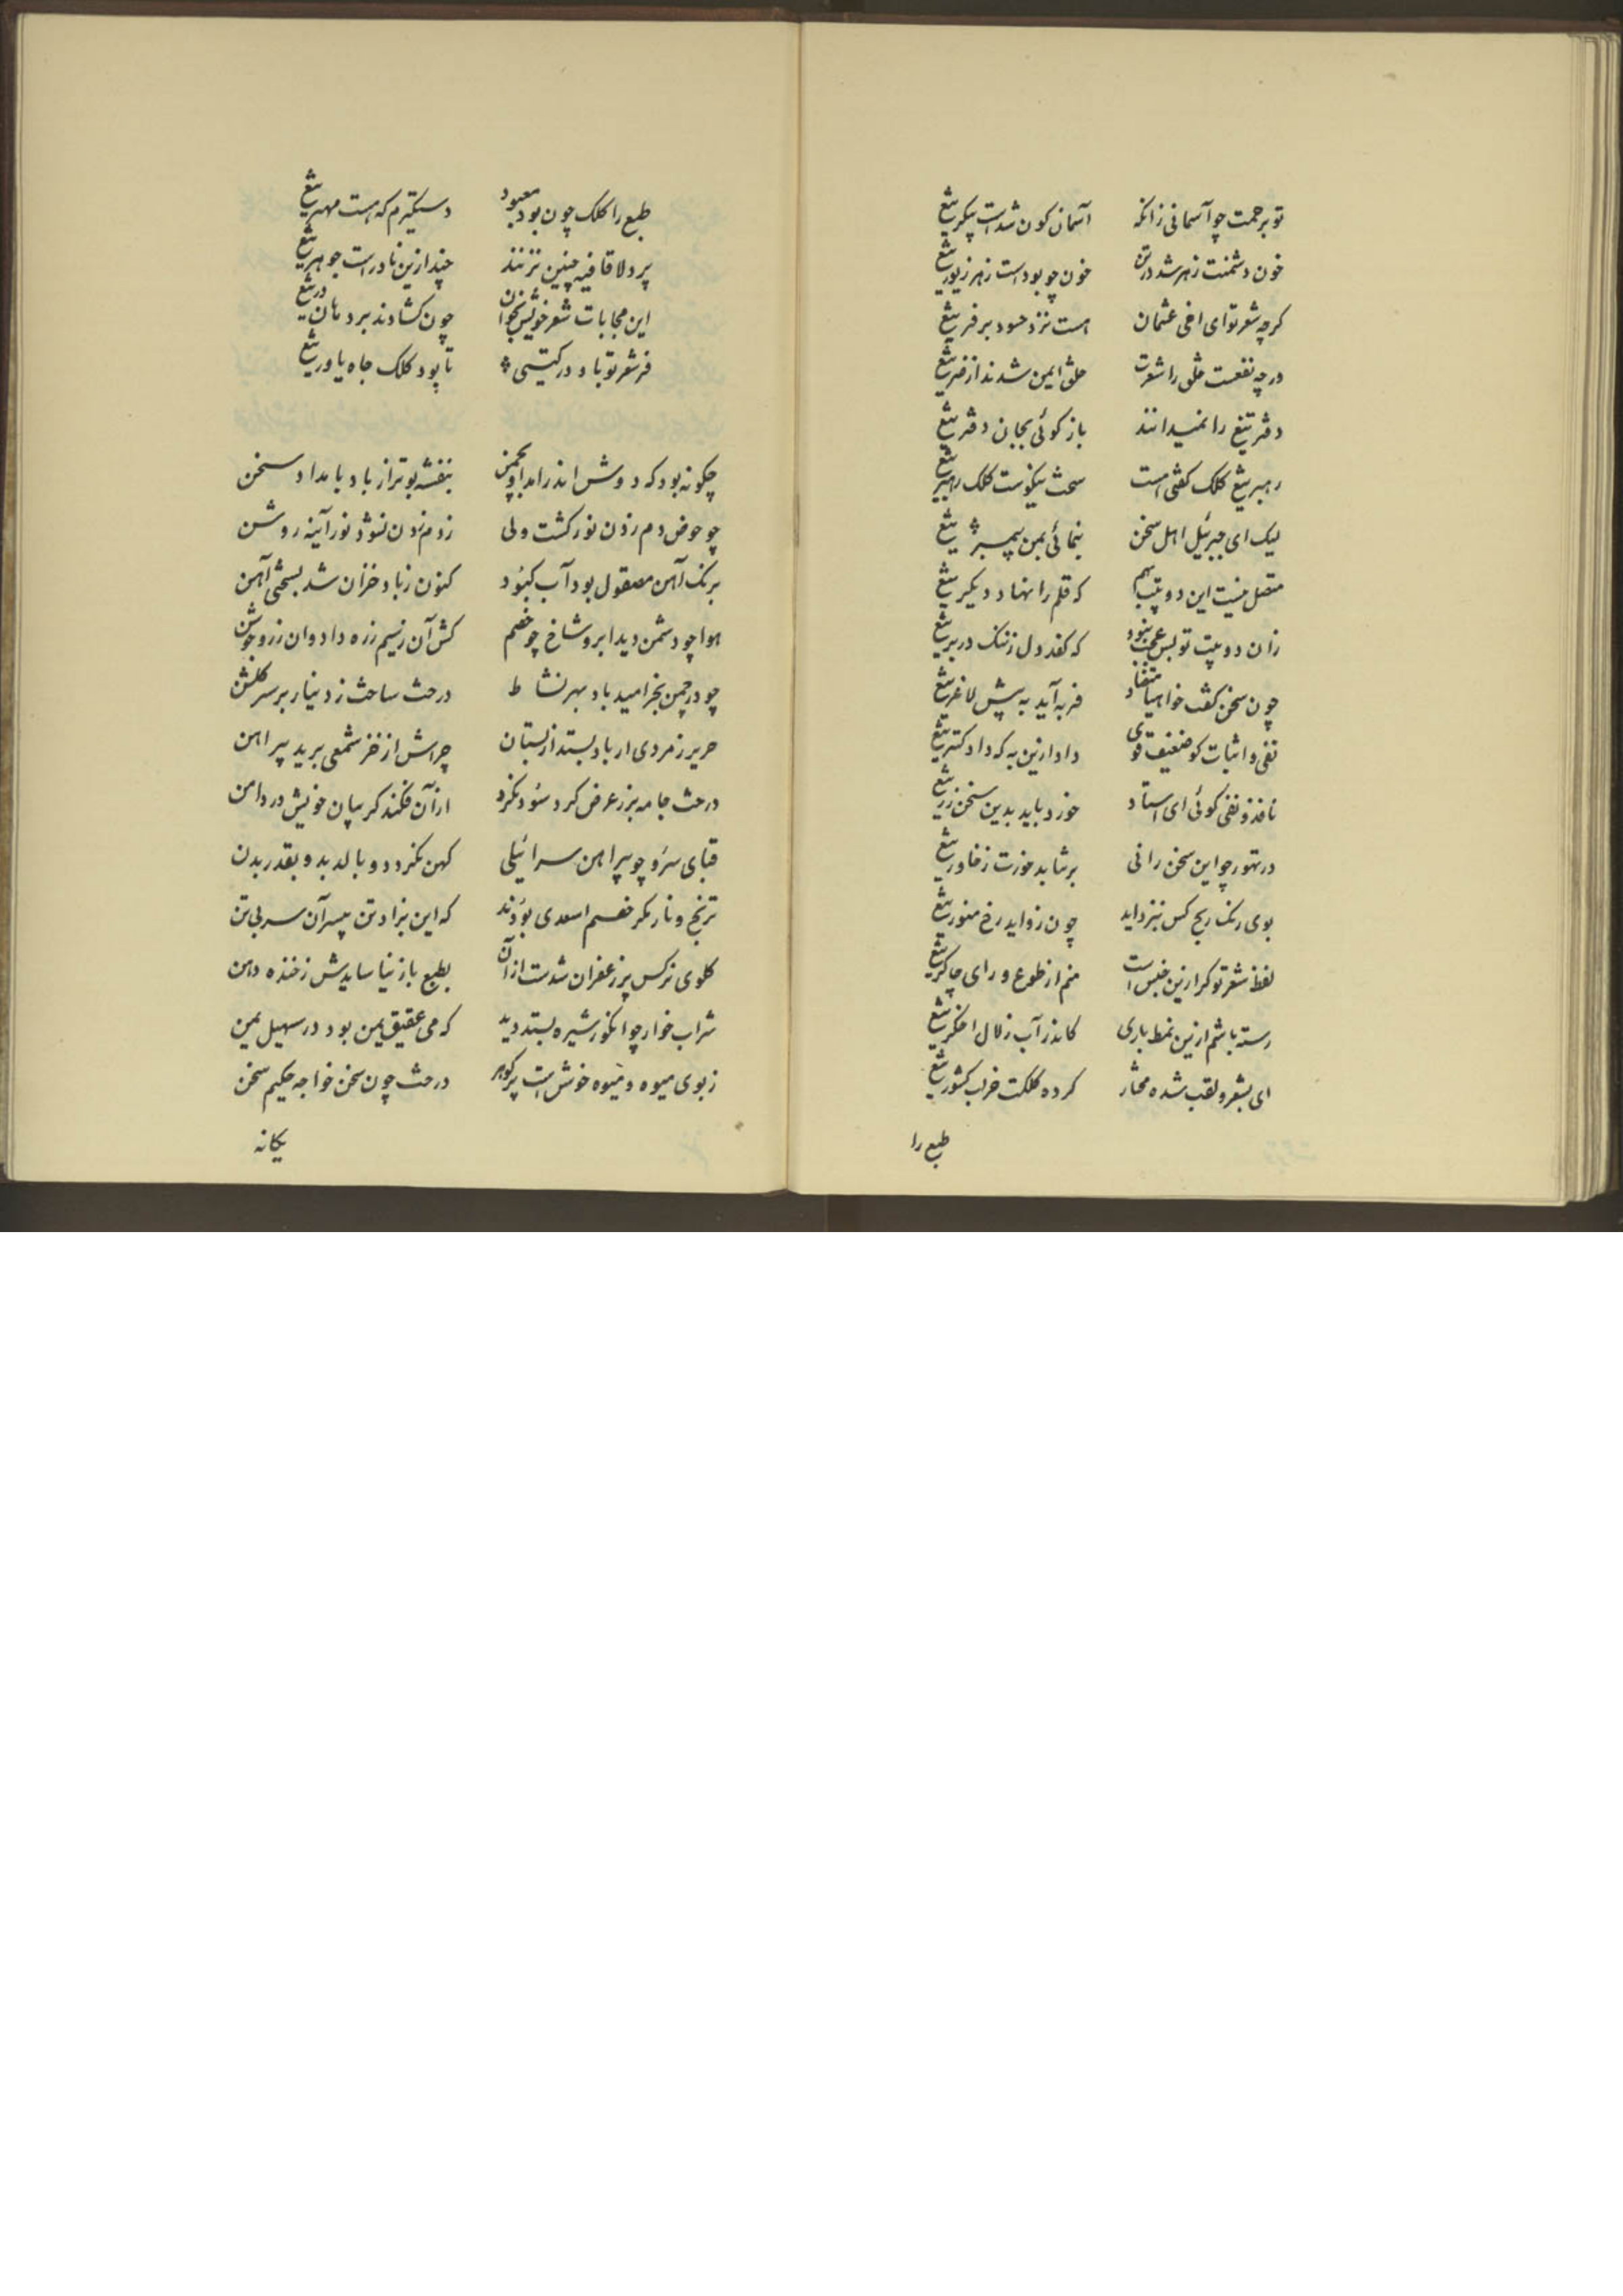 تو برحمت چو آسمانی زانکه آسمان کون شدست پیکر تیغ
خون دشمنت زهر شد در تن خون چو بودست زهر زیور تیغ
کرچه شعر تو ای اخی عثمان هست نزد حسود بر فر تیغ
درچه نفعست خلق را شعرت خلق ایمن شدند از ضر تیغ
دفتر تیغ را نمیدانند باز کوئی بجان دفتر تیغ
رهبر تیغ کلک کفتی است سخت نیکوست کلک رهبر تیغ
لیک ای جبرئیل اهل سخن بنمائی بمن پیمبر تیغ
متصل نیست این دو بیت بهم که قلم را نهاد و دیکر تیغ
زان دو بیت تو بس عجب نبود که کفد دل زننک در بر تیغ
چون سخن کفت خواهی متضاد فربه آید به پیش لاغر تیغ
نفی و اثبات کو ضعیف قوی داد ازین به که داد کستر تیغ
نافذ و نفی کوئی ای استاد خورد باید بدین سخن زر تیغ
در تهور چو این سخن رانی برشاید خورت ز خاور تیغ
بوی رنک ریح کس نزداید چون زداید رخ منور تیغ
لفظ شعر تو کر ازین جنس است منم از طوع و رای چاکر تیغ
رسته باشم ازین نمط باری کاندر آب زلال اخکر تیغ
ای بشعر و لقب شده مختار کرده کلکت خراب کشور تیغ
طبع را
طبع را کلک چون بود معبود دستکیرم که هست مهر تیغ
پر دلا قافیه چنین نزنند چند ازین نادرست جوهر تیغ
این مجابات شعر خویش بخوان چون کشادند بر دهان در تیغ
فر شعر تو باد در کیتی تا بود کلک جاه یاور تیغ
چکونه بود که دوش اندر آمد او بچمن بنفشه بوتر از باد بامداد سخن
چو حوض دم زدن نور کشت ولی ز دم زدن نشود نور آینه روشن
برنک آهن مصقول بود آب کبود کنون ز باد خزان شد بسختی آهن
هوا چو دشمن دید ابر و شاخ چو خصم کش آن ز سیم زره داد و ان ز زر جوشن
چو در چمن بخرامید باد بهر نشاط درخت ساخت ز دینار بر سر کلشن
حریر زمردی ار باد بستد از بستان چراش از خز شمعی برید پیراهن
درخت جامه بزر عرض کرد سود نکرد از آن فکند کریبان خویش در دامن
قبای سرو چو پیراهن سرائیلی کهن نکردد و بالد بد و بقدر بدن
ترنج و نار مکر خصم اسعدی بودند که این بزاد تن پیسر آن سر بی تن
کلوی نرکس پر زعفران شدست از آن بطبع باز نیاسایدش ز خنده دهن
شراب خوار چو انکور شیره بستد دید که می عقیق یمن بود در سهیل یمن
ز بوی میوه و میوه خوش است پر کوهر درخت چون سخن خواجه حکیم سخن
یکانه